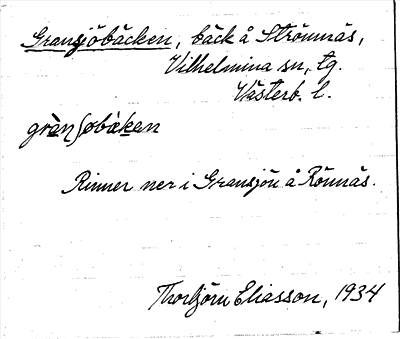 Gransjöbäcken, bäck å Strömnäs,
Vilhelmina sn, tg.
Västerb. l.
grànʃøbäkan
Rinner ner i Gransjön å Rönnäs.
Thorbjörn Eliasson, 1934